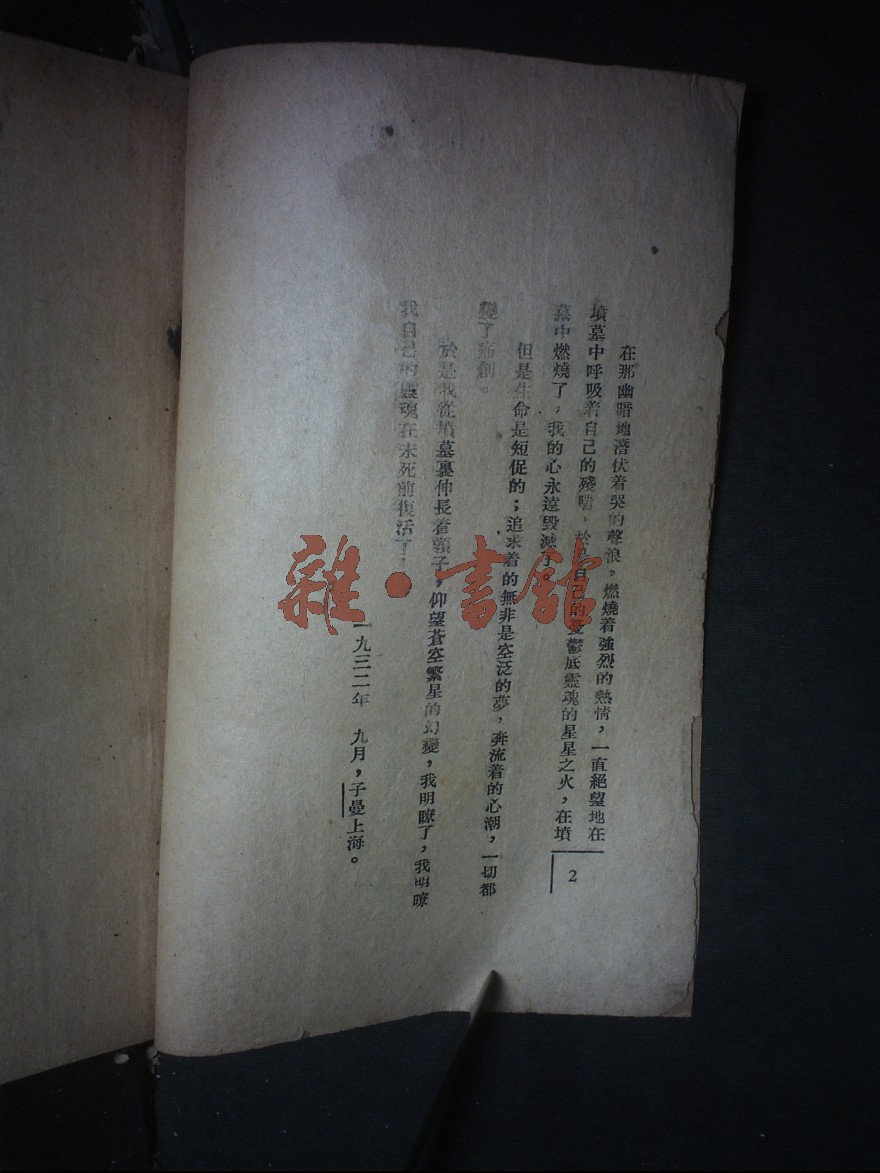 在那幽暗地潛伏着哭的聲浪，燃燒着強烈的熱情，一直絕望地在
墳墓中呼吸着自己的殘喘，於是自己的憂鬱底靈魂的星星之火，在墳
墓中燃燒了，我的心永遠毀滅了
但是生命是短促的；追求着的無非是空泛的夢，奔流着的心潮，一切都
變了創。
於是我從墳墓裏伸長着頸子，仰望蒼空繁星的幻變，我明瞭了，我明瞭
我自己的靈魂在未死前復活了
一九三二年 九月，子曼上海。
2
雜·書館